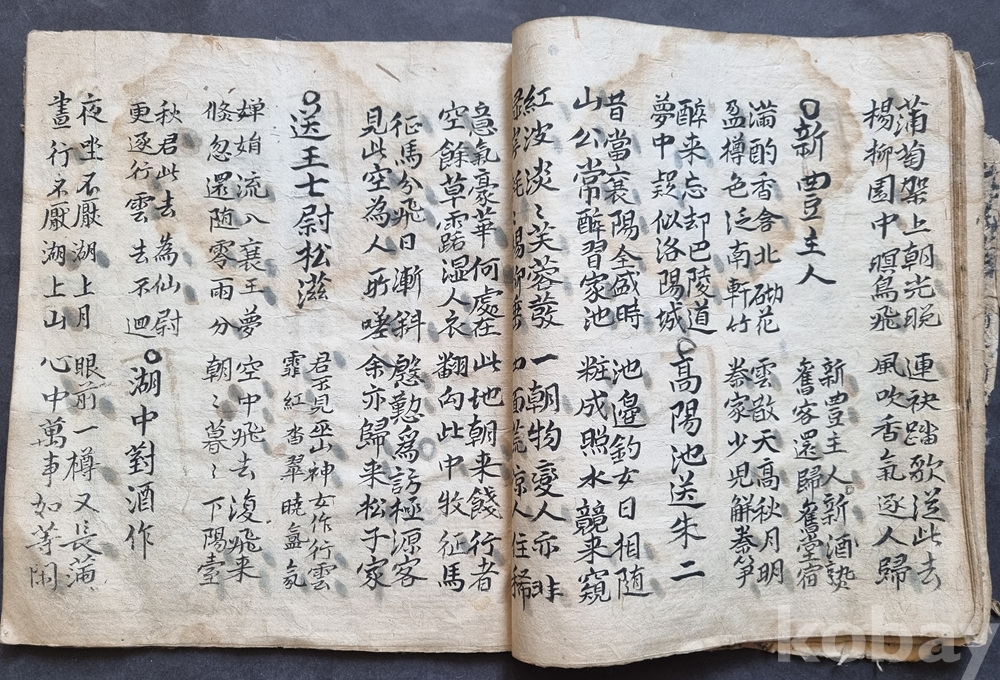 蒲萄架上朝光晩
楊柳園中暝鳥飛
連袂踏歌送此去
風吹香氣逐人歸
新豊主人
新豊主人新酒熟
舊客還歸舊堂宿
滿酌香含北砌花
盈樽色泛南軒竹
雲散天高秋月明
秦家少兒解秦箏
醉来忘却巴陵道
夢中疑似洛陽城
高陽池送朱二
昔當襄陽全盛時
山公常醉習家池
池邊釣女日相随
粧成照水競来窺
紅波淡〻芙蓉發
楊柳垂
一朝物變人亦非
四面荒凉人住稀
急氣豪華何處在
空餘草露湿人衣
此地朝来餞行者
翻向此中牧征馬
征馬分飛日漸斜
見此空為人所嗟
慇懃爲訪極源客
余亦歸来松子家
送王七尉松滋
君不見巫山神女作行雲
霏紅沓翠曉氳氛
嬋娟流入襄王夢
倏忽還随零雨分
空中飛去復飛来
朝〻暮〻下陽臺
秋君此去為仙尉
更逐行雲去不迴
湖中對酒作
夜坐不厭湖上月
晝行不厭湖上山
眼前一樽又長滿
心中萬事如等閑
kobay